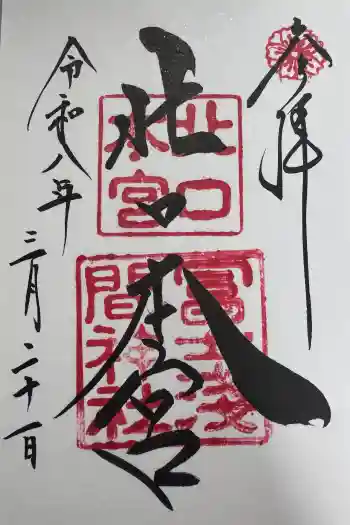 奉拝
北口
本宮
北口
本宮
冨士浅
間神社
令和八年
三月二十一日